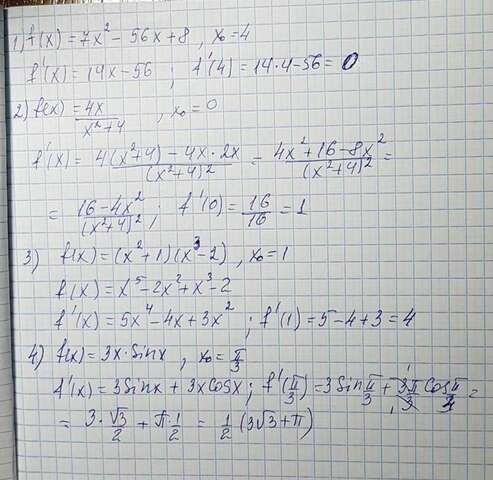 1) f(x) = 7x² - 56x + 8 , x₀ = 4
f'(x) = 14x - 56 ; f'(4) = 14·4 - 56 = 0
2) f(x) = 4x/(x²+4) , x₀ = 0
f'(x) = (4(x²+4) - 4x·2x)/(x²+4)² = (4x²+16-8x²)/(x²+4)² =
= (16-4x²)/(x²+4)² ; f'(0) = 16/16 = 1
3) f(x) = (x²+1)(x³-2) , x₀ = 1
f(x) = x⁵ - 2x² + x³ - 2
f'(x) = 5x⁴ - 4x + 3x² ; f'(1) = 5 - 4 + 3 = 4
4) f(x) = 3x·Sinx , x₀ = π/3
f'(x) = 3Sinx + 3xCosx ; f'(π/3) = 3Sin π/3 + 3π/3 Cos π/3 =
= 3·√3/2 + π·1/2 = 1/2 (3√3 + π)